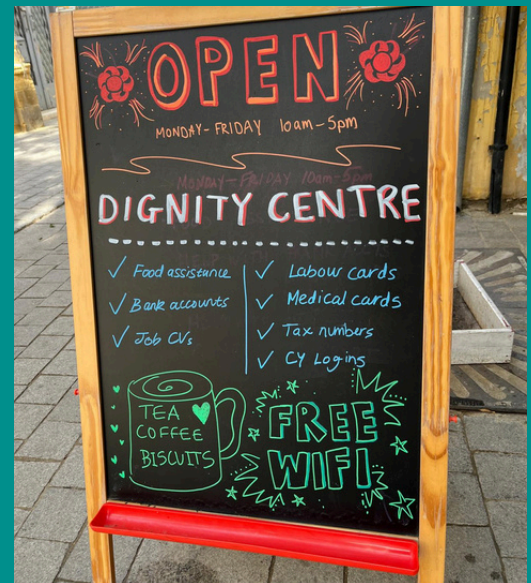 OPEN
MONDAY-FRIDAY 10am-5pm
MONDAY-FRIDAY 10am-5pm
DIGNITY CENTRE
✓ Food assistance
✓ Bank accounts
✓ Job CVs
✓ Labour cards
✓ Medical cards
✓ Tax numbers
✓ CY Logins
TEA
COFFEE
BISCUITS
FREE
WIFI